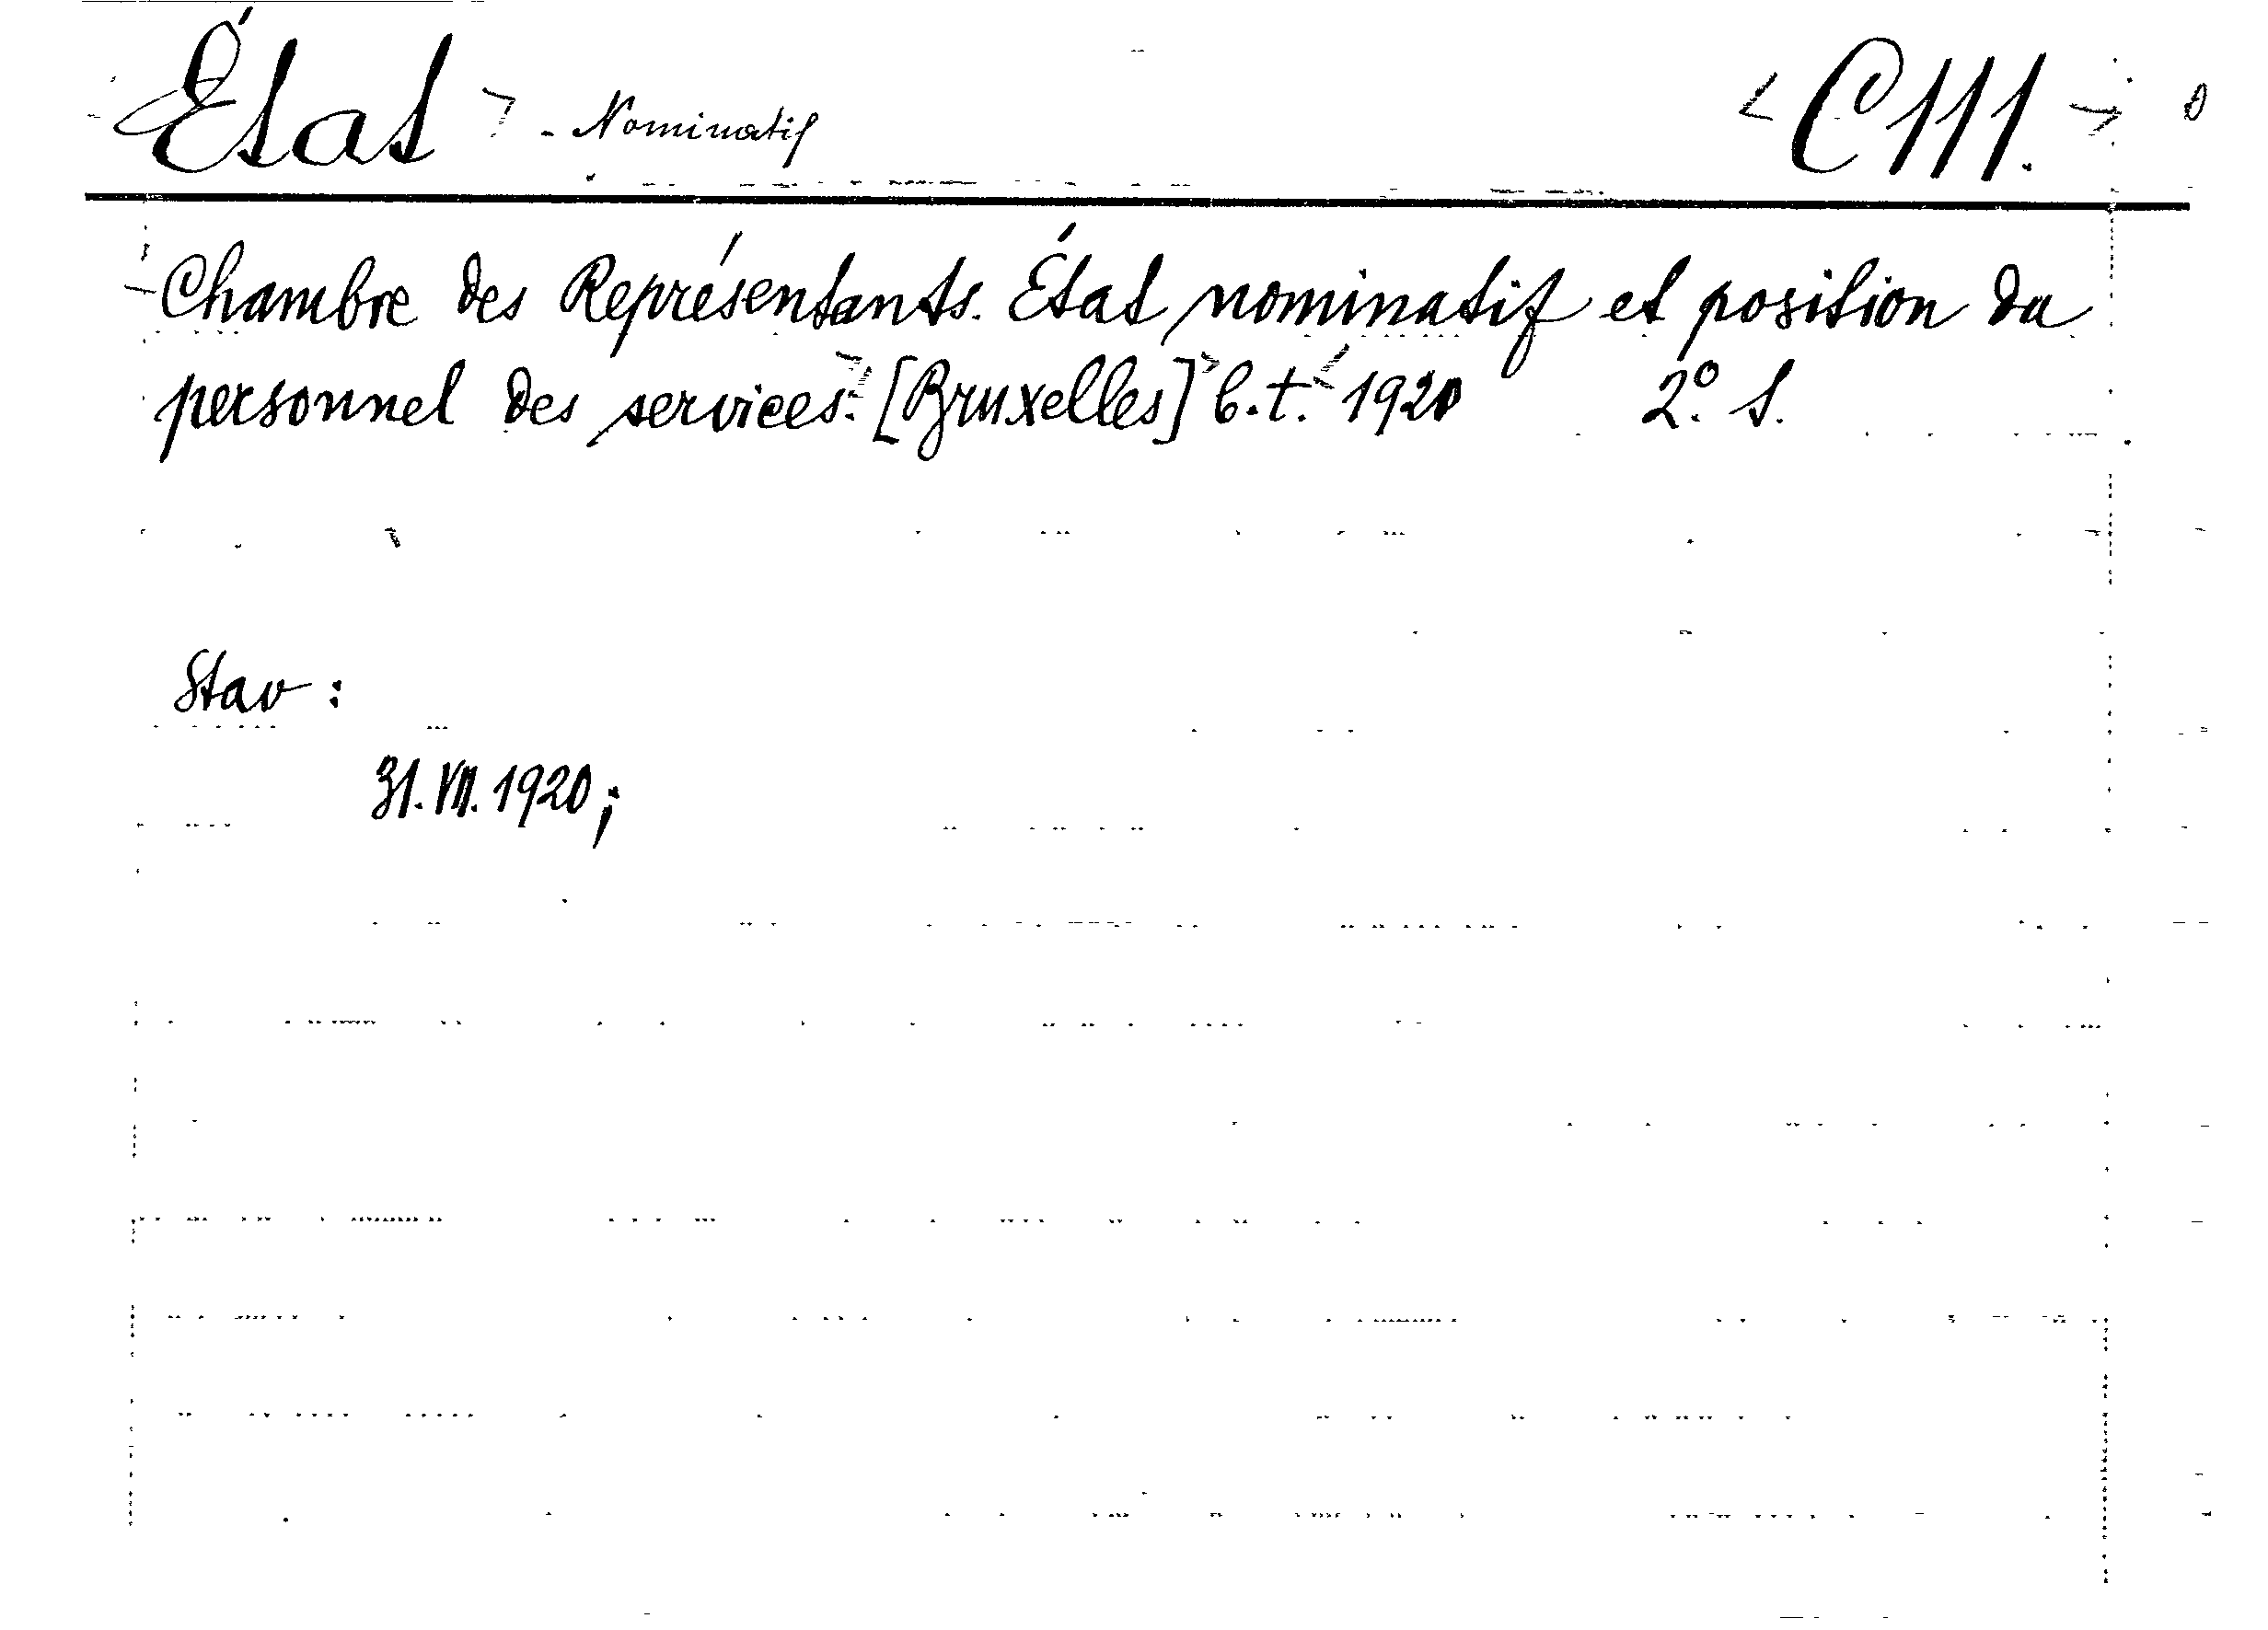 État - Nominatif C 111.
Chambre des Représentants. État nominatif et position du
personnel des services. [Bruxelles] b.t. 1920 2.° S.
Stav:
31. VII. 1920;